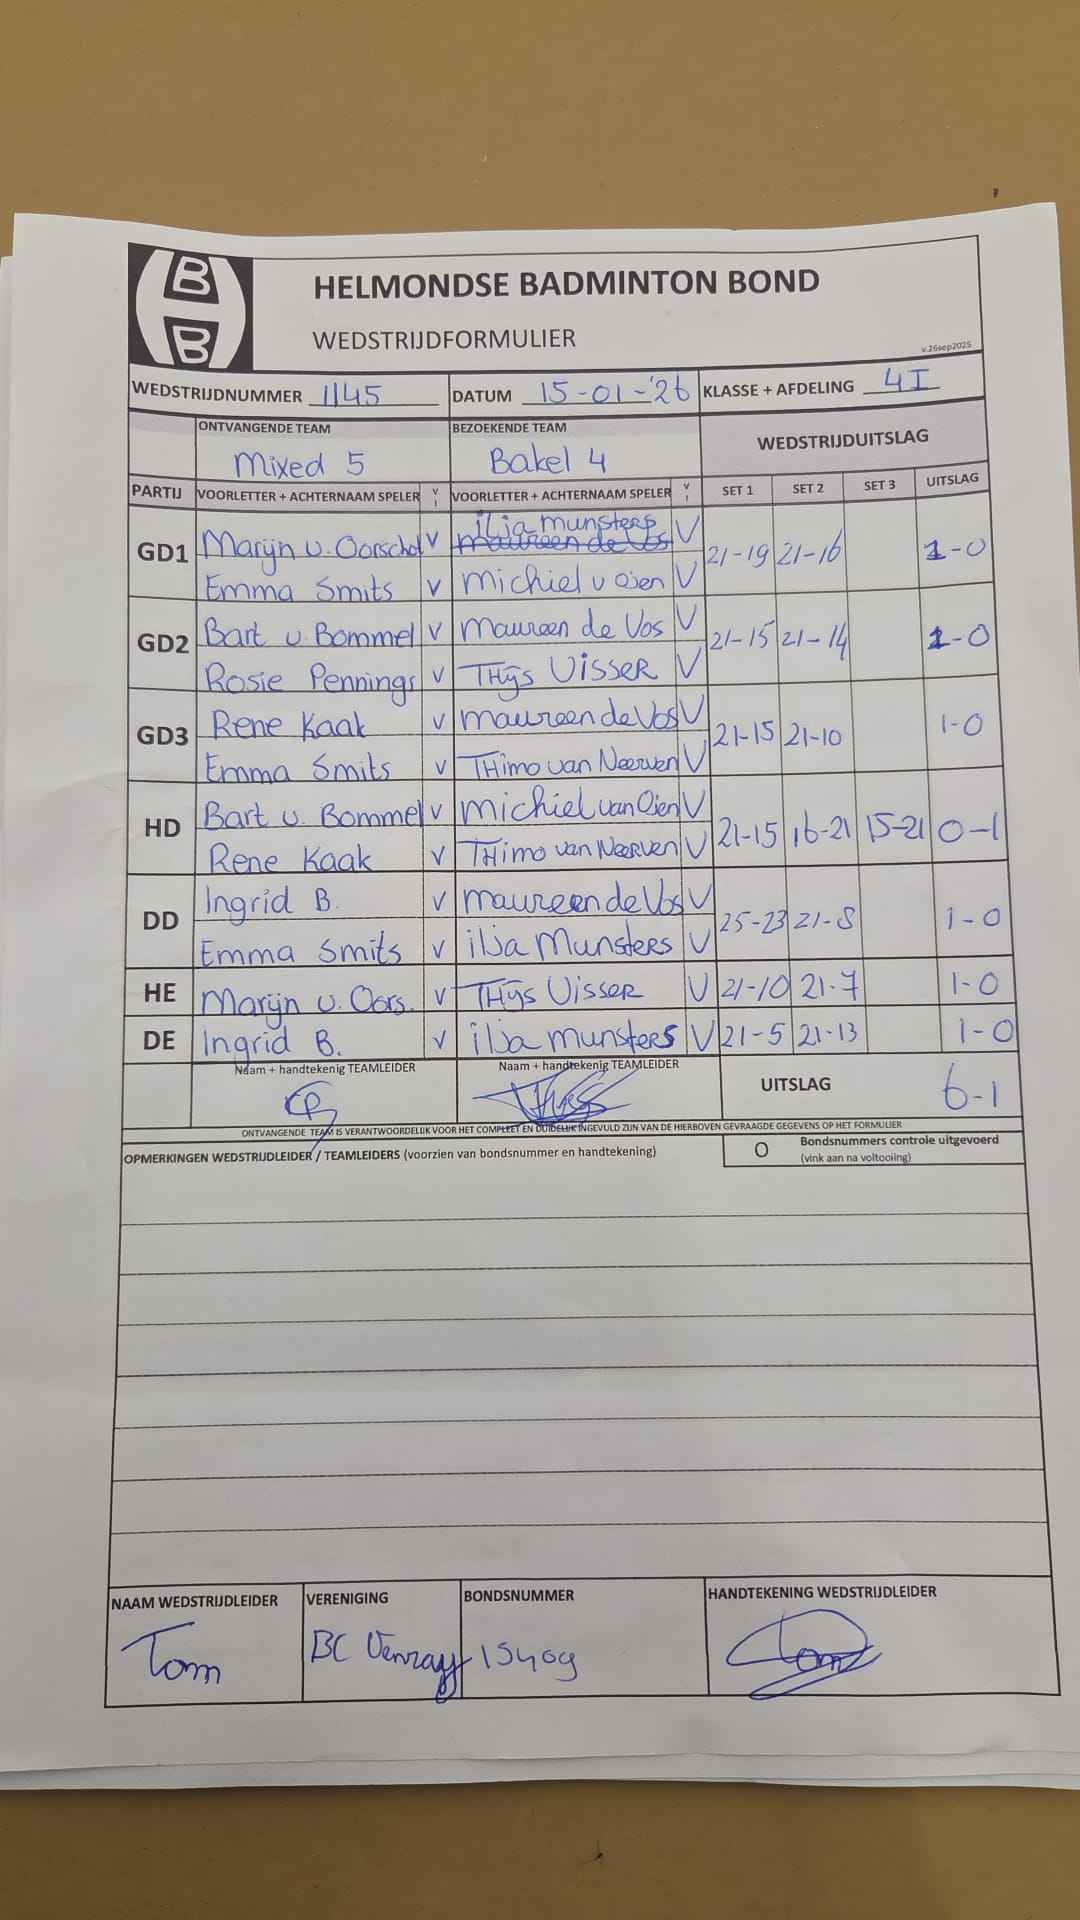 HELMONDSE BADMINTON BOND
WEDSTRIJDFORMULIER
v.26sep2025
WEDSTRIJDNUMMER 1145 DATUM 15-01-'26 KLASSE + AFDELING 4I
ONTVANGENDE TEAM BEZOEKENDE TEAM WEDSTRIJDUITSLAG
Mixed 5 Bakel 4
PARTIJ VOORLETTER + ACHTERNAAM SPELER V ! VOORLETTER + ACHTERNAAM SPELER V ! SET 1 SET 2 SET 3 UITSLAG
ilja munsters V
GD1 Marijn v. Oorschot V maureen de Vos 21-19 21-16 1-0
Emma Smits V michiel v oien V
GD2 Bart v. Bommel V maureen de Vos V 21-15 21-14 1-0
Rosie Pennings V THijs VISSER V
GD3 Rene Kaak V maureen de Vos V 21-15 21-10 1-0
Emma Smits V THimo van Neerven V
HD Bart v. Bommel V michiel van Oien V 21-15 16-21 15-21 0-1
Rene Kaak V THimo van Neerven V
DD Ingrid B. V maureen de Vos V 25-23 21-8 1-0
Emma Smits V ilja Munsters V
HE Marijn v. Oors. V THijs VISSER V 21-10 21-7 1-0
DE Ingrid B. V ilja munsters V 21-5 21-13 1-0
Naam + handtekenig TEAMLEIDER Naam + handtekenig TEAMLEIDER UITSLAG 6-1
ONTVANGENDE TEAM IS VERANTWOORDELIJK VOOR HET COMPLEET EN DUIDELIJK INGEVULD ZIJN VAN DE HIERBOVEN GEVRAAGDE GEGEVENS OP HET FORMULIER
OPMERKINGEN WEDSTRIJDLEIDER / TEAMLEIDERS (voorzien van bondsnummer en handtekening) O Bondsnummers controle uitgevoerd
(vink aan na voltooiing)
NAAM WEDSTRIJDLEIDER VERENIGING BONDSNUMMER HANDTEKENING WEDSTRIJDLEIDER
Tom BC Venray 15409 Tom